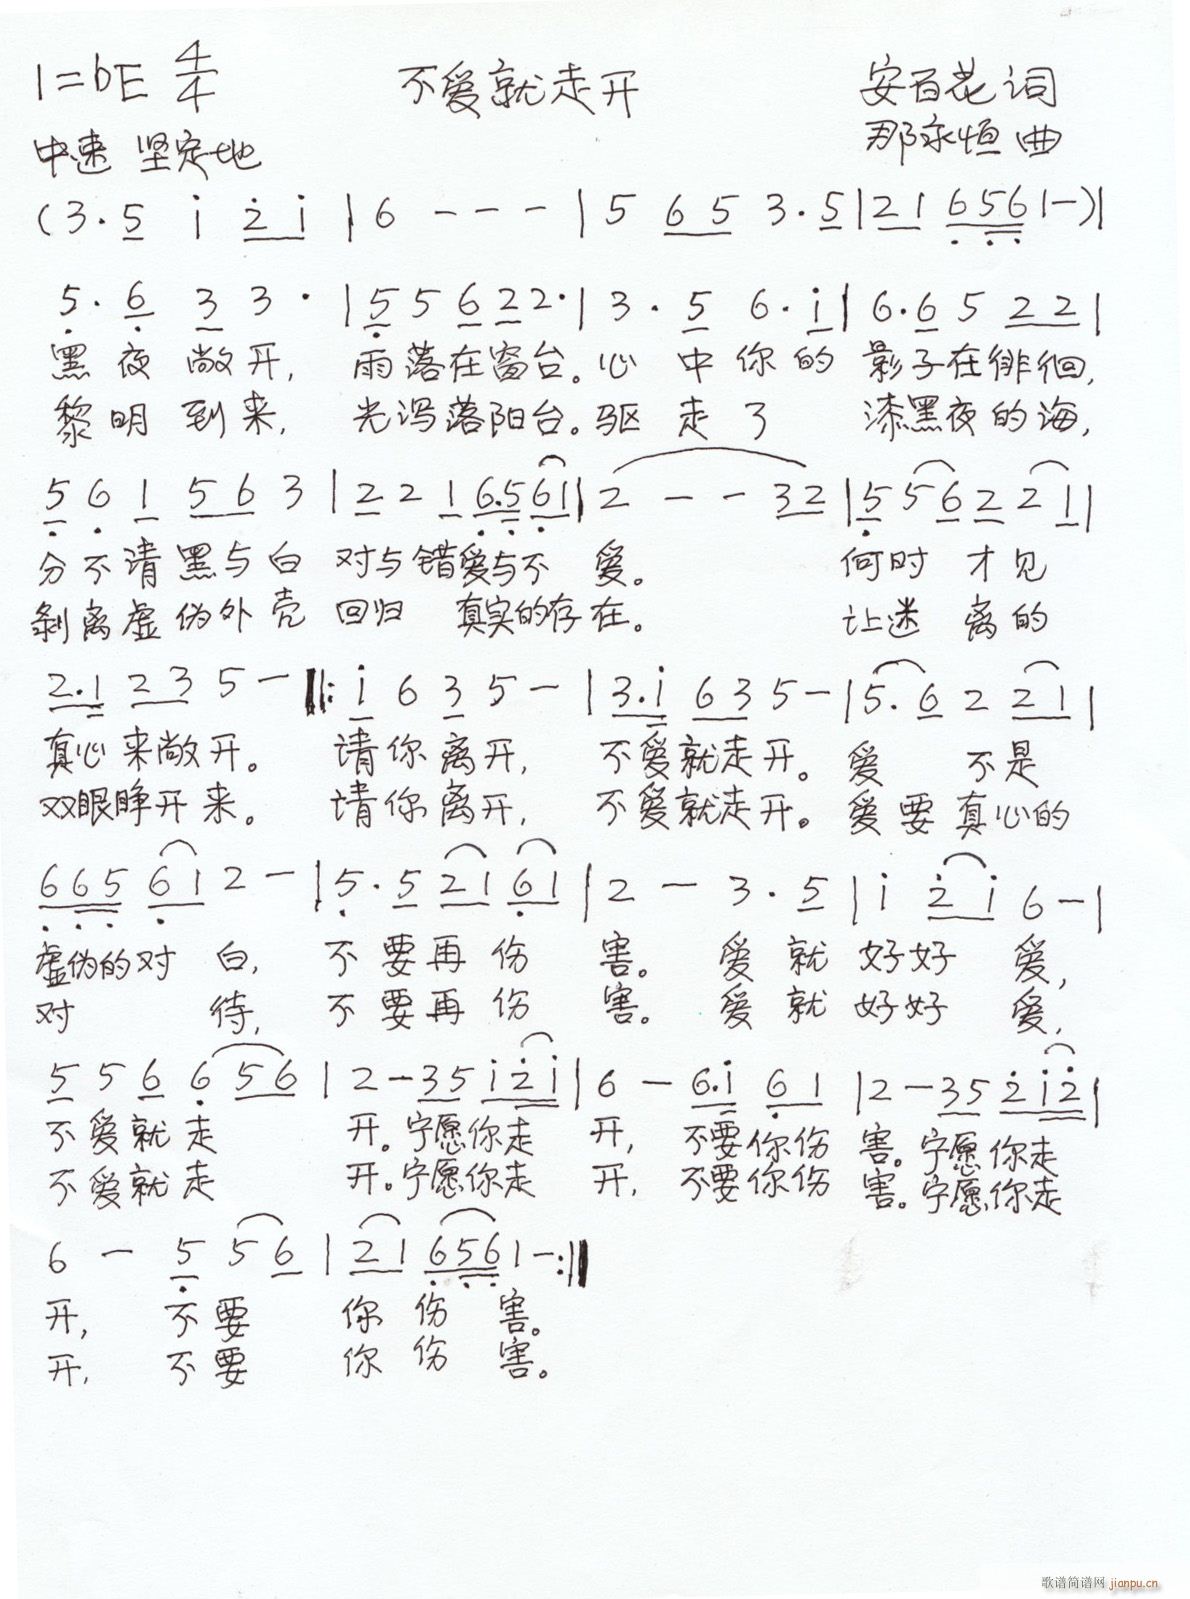 1=bE 4/4 不爱就走开 安百花词
中速 坚定地 那永恒曲
(3·5 i 2̇ i | 6 - - - | 5 65 3·5 | 21 6̣5̣6̣ 1-)|
5̣· 6̣ 3 3· | 5̣ 5 6 2 2· | 3· 5 6· i | 6·6 5 22 |
黑夜敞开, 雨落在窗台。心中你的影子在徘徊,
黎明到来, 光泻落阳台。驱走了漆黑夜的海,
5̣ 6̣ 1 56 3 | 2 2 1 6̣·5̣ 6̣1 | 2 - - 32 | 5̣ 5 6 2 2 1 |
分不请黑与白 对与错爱与不爱。 何时才见
剝离虚伪外壳 回归真实的存在。 让迷离的
2·1 23 5 - ‖: i 6 3 5 - | 3·i 63 5 - | 5· 6 2 21 |
真心来敞开。 请你离开, 不爱就走开。爱不是
双眼睁开来。 请你离开, 不爱就走开。爱要真心的
6̣6̣5̣ 6̣1 2 - | 5̣· 5 21 6̣1 | 2 - 3· 5 | i 2̇i 6 - |
虚伪的对白, 不要再伤害。 爱就好好爱,
对待, 不要再伤害。 爱就好好爱,
5 5 6 6̣ 56 | 2 - 35 i2̇i | 6 - 6·i 6̣1 | 2 - 35 2̇i2̇ |
不爱就走开。宁愿你走开, 不要你伤害。宁愿你走
不爱就走开。宁愿你走开, 不要你伤害。宁愿你走
6 - 5̣ 5 6 | 21 6̣5̣6̣ 1 - :‖
开, 不要你伤害。
开, 不要你伤害。
歌谱简谱网 jianpu.cn